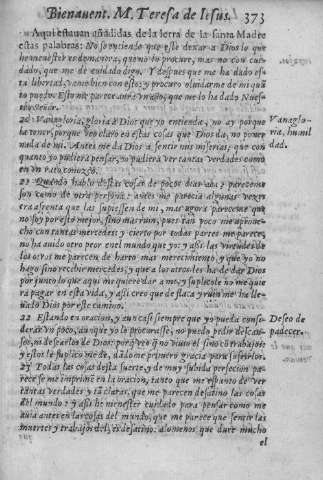 Bienauent. M. Teresa de Iesus. 373
Aqui estauan añadidas de la letra de la santa Madre
estas palabras: No se entienda que este dexar a Dios lo que
he menester es de manera, que no lo procure, mas no con cuy-
dado, que me de cuidado digo. Y despues que me ha dado es-
ta libertad, vame bien con esto; y procuro oluidarme de mi quã
to puedo. Esto me parece aurà vn año, que me lo ha dado Nuestro
Señor.
20 Vanagloria, gloria à Dios que yo entienda, no ay porque
la tener, porque veo claro en estas cosas que Dios da, no poner
nada de mi. Antes me da Dios a sentir mis miserias; que con
quanto yo pudiera pensar, no pudiera ver tantas verdades como
en vn rato conozco.
Vanaglo-
ria, humil
dad.
21 Quando hablo destas cosas de pocos dias aca, pareceme
son como de otra persona: antes me parecia algunas vezes
era afrenta que las supiessen de mi, mas agora pareceme que
no soy por esto mejor, sino mas ruin, pues tan poco me aprouecho
con tantas mercedes; y cierto por todas partes me parece,
no ha auido otro peor en el mundo que yo: y assi las virtudes de
los otros me parecen de harto mas merecimiento, y que yo no
hago sino recibir mercedes, y que a los otros les ha de dar Dios
por junto lo que aqui me quiere dar a mi, y suplicole no me quie
ra pagar en esta vida, y assi creo que de flaca y ruin me ha lle-
uado Dios por este camino.
22 Estando en oracion, y aun casi siempre que yo pueda consi-
derar vn poco, aunque yo lo procurasse, no puedo pedir descan-
sos, ni desearlos de Dios, porque veo que no viuio el sino cõ trabajos
y estos le suplico me de, dandome primero gracia para sufrirlos.
Deseo de
padecer.
23 Todas las cosas desta suerte, y de muy subida perfecion pa-
rece se me imprimẽ en la oracion, tanto que me espanto de ver
tantas verdades y tã claras, que me parecen desatino las cosas
del mundo: y assi he menester cuidado para pensar como me
auia antes en las cosas del mundo, que me parece que sentir las
muertes y trabajos del, es desatino: alomenos que dure mucho
el